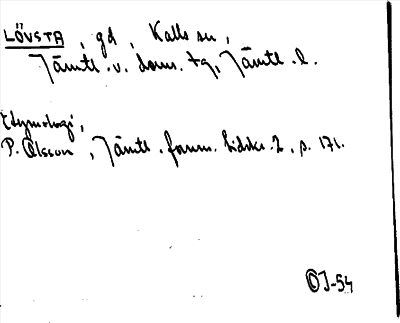 LÖVSTA, gd, Kalls sn,
Jämtl. v. doms. tg, Jämtl. l.
Etymologi,
P. Olsson, Jämtl. fornm. tidskr. 2, s. 171.
OJ-54